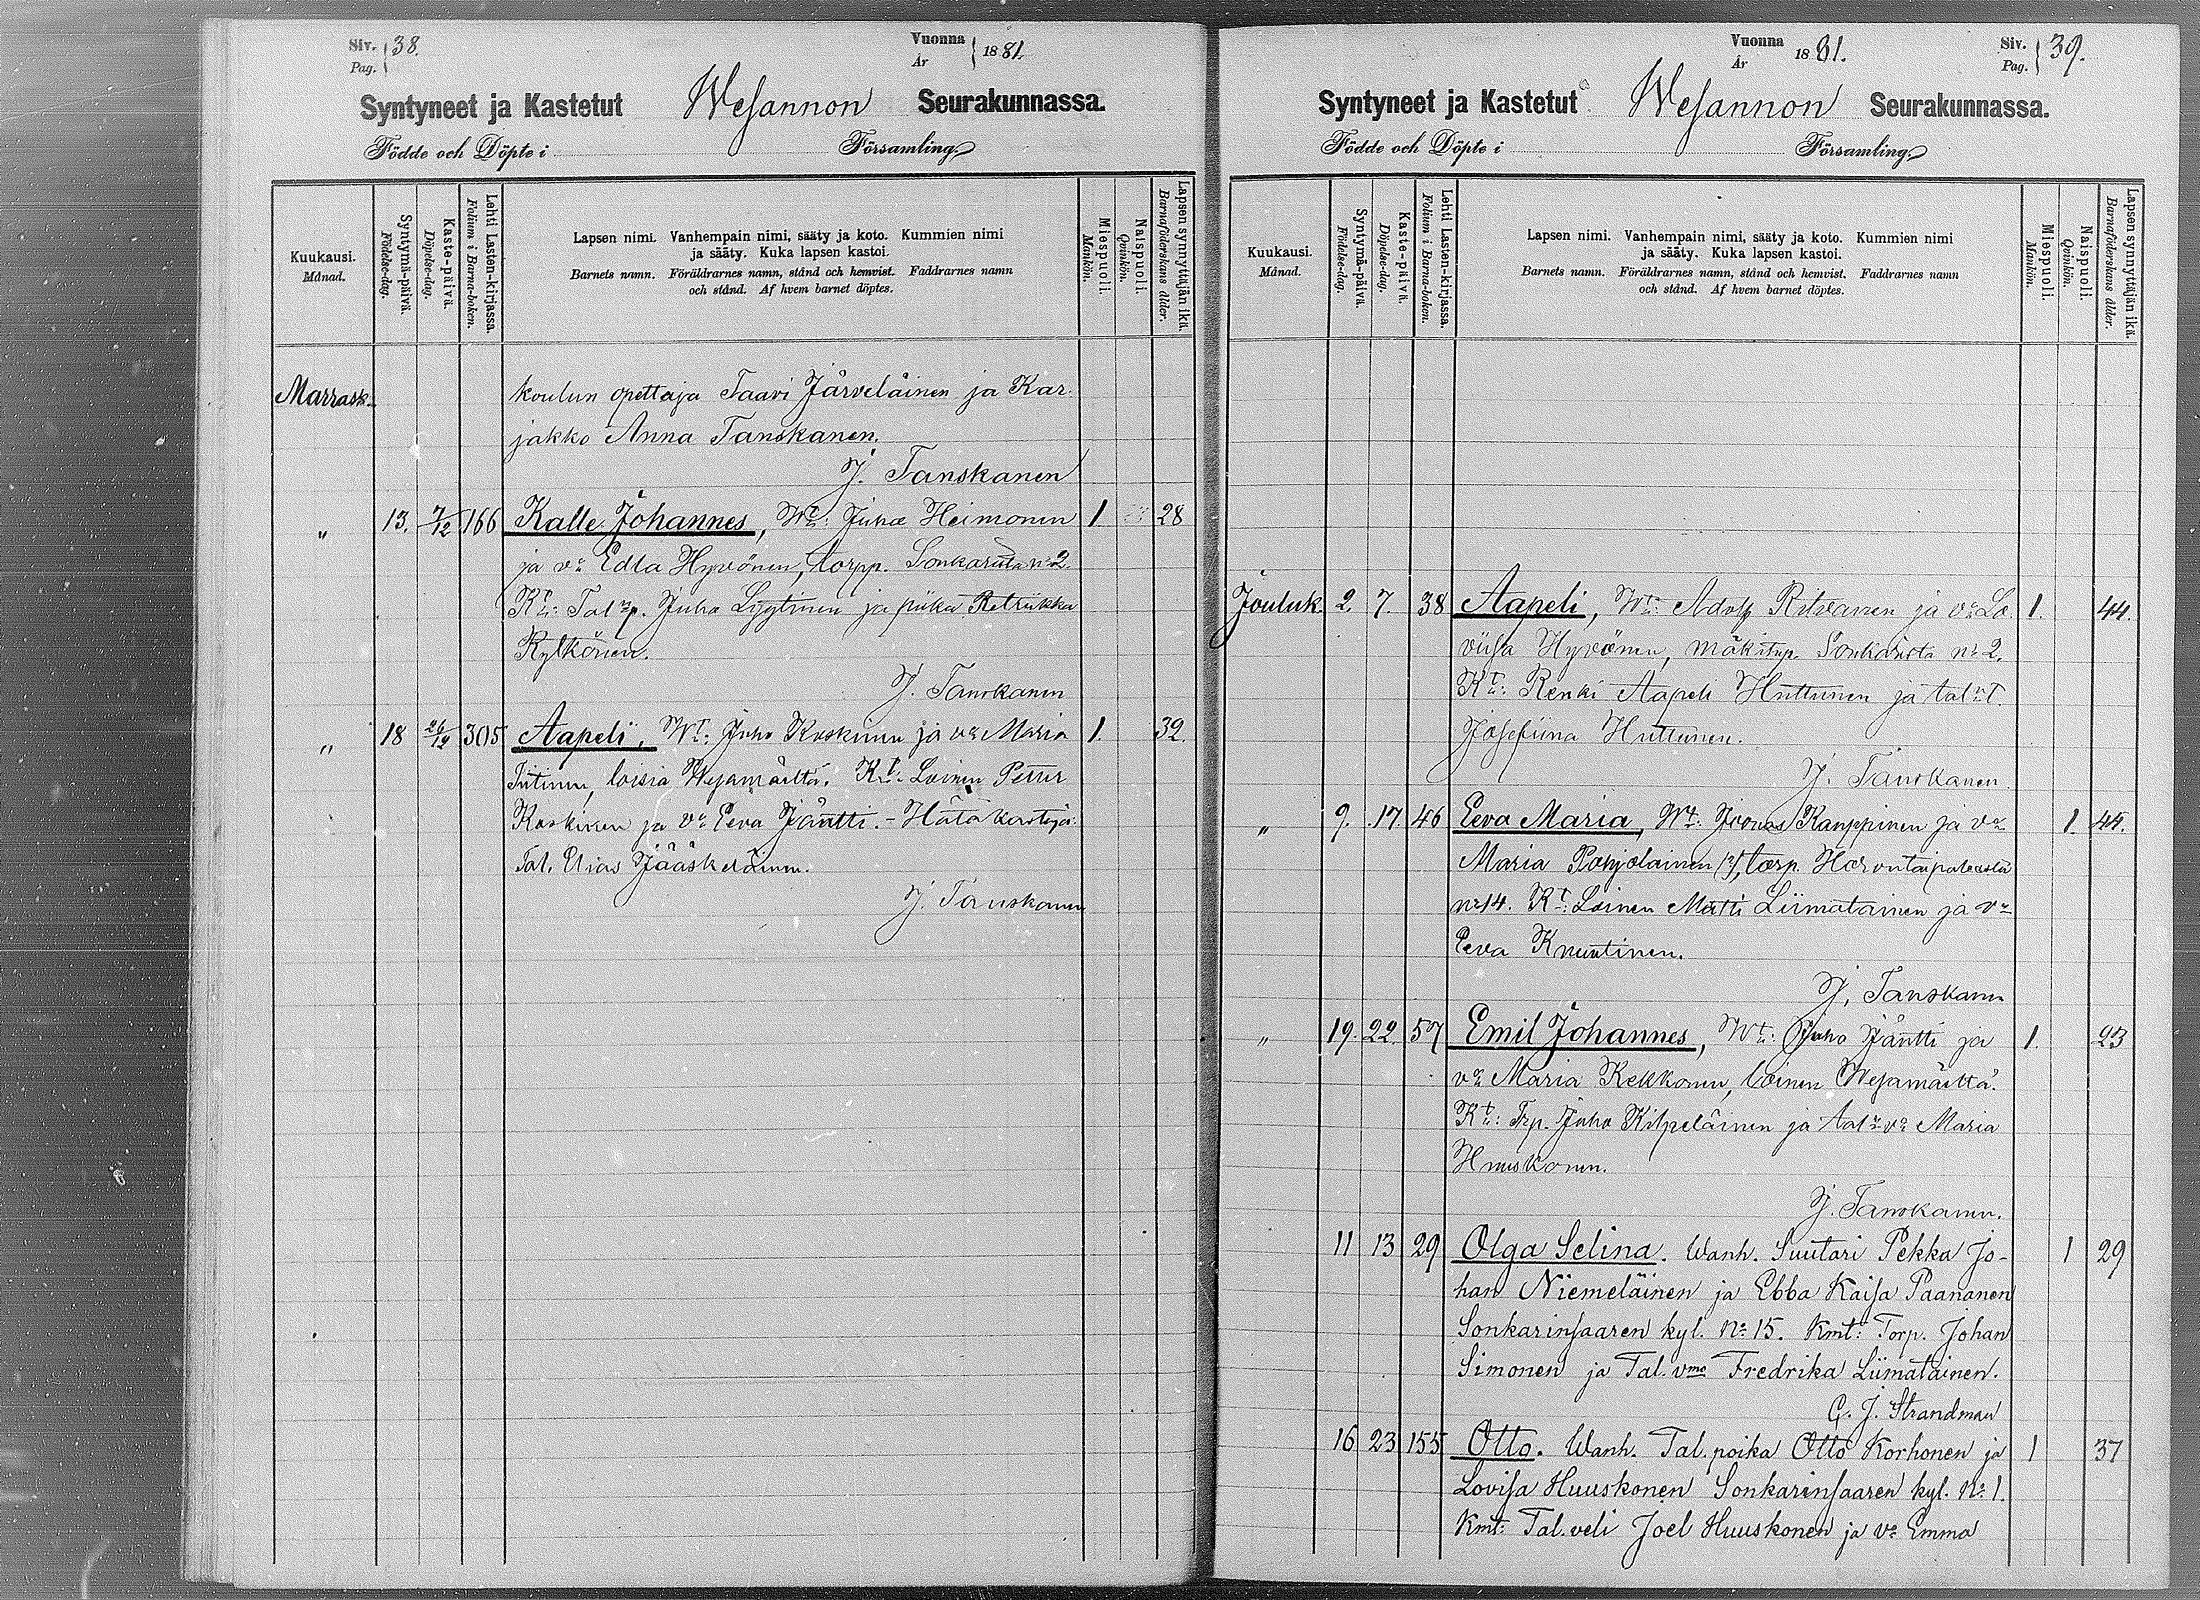 Siv. 38.
Pag.
Vuonna 1881.
År
Syntyneet ja Kastetut Wesannon Seurakunnassa.
Födde och Döpte i Församling.
Kuukausi. Månad.
Syntymä-päivä. Födelse-dag.
Kaste-päivä. Döpelse-dag.
Lehti Lasten-kirjassa. Folium i Barna-boken.
Lapsen nimi. Vanhempain nimi, sääty ja koto. Kummien nimi
ja sääty. Kuka lapsen kastoi.
Barnets namn. Föräldrarnes namn, stånd och hemvist. Faddrarnes namn
och stånd. Af hvem barnet döptes.
Miespuoli. Mankön.
Naispuoli. Qvinkön.
Lapsen synnyttäjän ikä. Barnaföderskans ålder.
Marrask. koulun opettaja Taavi Järveläinen ja Kar-
jakko Anna Tanskanen.
J. Tanskanen
" 13. 7/12 166 Kalle Johannes, Wt: Juho Heimonen 1. 28
ja vo Edla Hyvönen, torpp. Sonkarista no 2.
Kt: Tal. p. Juho Lyytinen ja piika Retriikka
Rytkönen.
J. Tanskanen
" 18 26/12 305 Aapeli, Wt: Juho Koskinen ja vo Maria 1. 32.
Tiitinen, loisia Wesamäeltä. Kt: Loinen Petter
Koskinen ja vo Eeva Jäntti. - Hätäkastaja:
Tal. Elias Jääskeläinen.
J. Tanskanen
Vuonna 1881.
År
Siv. 39.
Pag.
Syntyneet ja Kastetut Wesannon Seurakunnassa.
Födde och Döpte i Församling.
Kuukausi. Månad.
Syntymä-päivä. Födelse-dag.
Kaste-päivä. Döpelse-dag.
Lehti Lasten-kirjassa. Folium i Barna-boken.
Lapsen nimi. Vanhempain nimi, sääty ja koto. Kummien nimi
ja sääty. Kuka lapsen kastoi.
Barnets namn. Föräldrarnes namn, stånd och hemvist. Faddrarnes namn
och stånd. Af hvem barnet döptes.
Miespuoli. Mankön.
Naispuoli. Qvinkön.
Lapsen synnyttäjän ikä. Barnaföderskans ålder.
Jouluk. 2. 7. 38 Aapeli, Wt: Adolf Ritvanen ja vo Lo- 1. 44.
viisa Hyvönen, mäkitup. Sonkarista no 2.
Kt: Renki Aapeli Huttunen ja tal. t.
Josefiina Huttunen.
J. Tanskanen.
" 9. 17 46 Eeva Maria, Wt: Joonas Kauppinen ja vo 1. 44.
Maria Pohjolainen, torp. Horontaipaleesta
no 14. Kt: Loinen Matti Liimatainen ja vo
Eeva Knuutinen.
J. Tanskanen
" 19. 22. 57 Emil Johannes, Wt: Juho Jäntti ja 1. 23
vo Maria Kekkonen, loinen Wesamäeltä.
Kt: Trp. Juho Kilpeläinen ja tal. vo Maria
Huuskonen.
J. Tanskanen.
11 13 29 Olga Selina. Wanh. Suutari Pekka Jo- 1 29
han Niemeläinen ja Ebba Kaisa Paananen
Sonkarinsaaren kyl. No 15. Kmt: Torp. Johan
Simonen ja Tal. vmo Fredrika Liimatainen.
C. J. Strandman
16 23 155 Otto. Wanh. Tal. poika Otto Korhonen ja 1 37
Lovisa Huuskonen Sonkarinsaaren kyl. No 1.
Kmt: Tal. veli Joel Huuskonen ja vo Emma